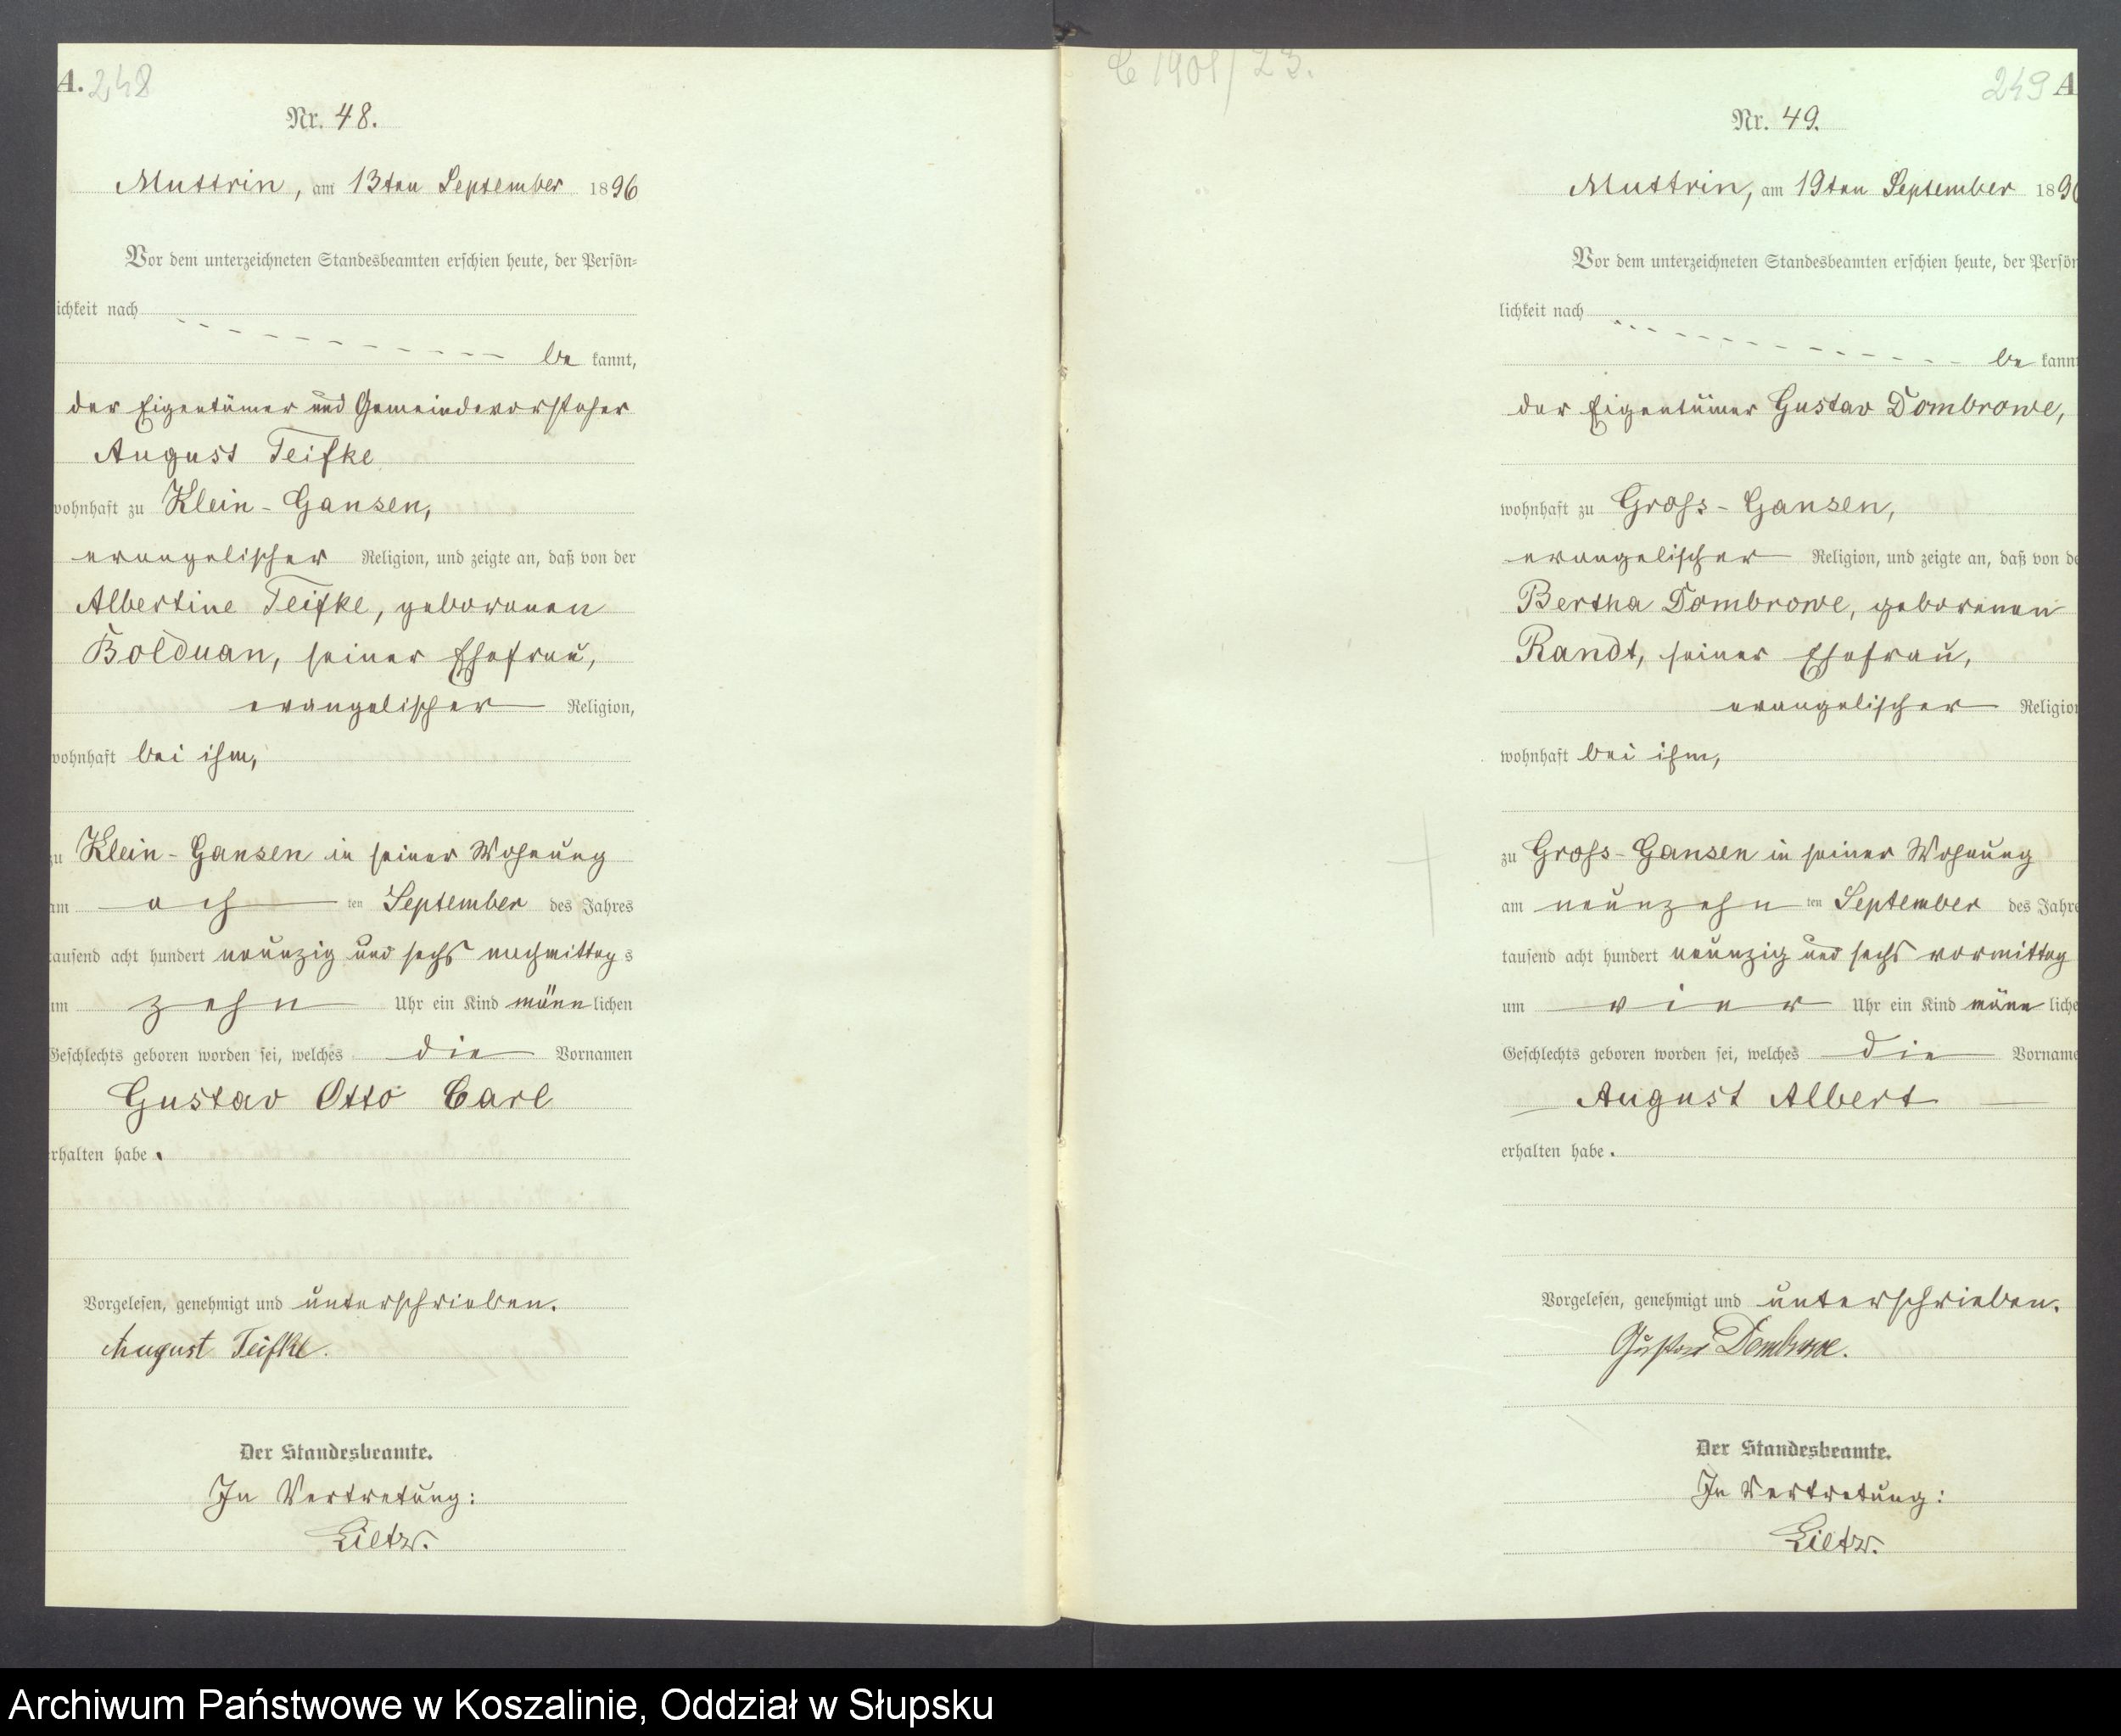 A. 248
Nr. 48.
Muttrin, am 13ten September 1896
Vor dem unterzeichneten Standesbeamten erschien heute, der Persön-
ichkeit nach
be kannt,
der Eigentümer und Gemeindevorsteher
August Teifke
wohnhaft zu Klein-Gansen,
evangelischer Religion, und zeigte an, daß von der
Albertine Teifke, geborenen
Bolduan, seiner Ehefrau,
evangelischer Religion,
wohnhaft bei ihm,
zu Klein-Gansen in seiner Wohnung
am ach ten September des Jahres
tausend acht hundert neunzig und sechs nachmittag s
um zehn Uhr ein Kind männ lichen
Geschlechts geboren worden sei, welches die Vornamen
Gustav Otto Carl
erhalten habe.
Vorgelesen, genehmigt und unterschrieben.
August Teifke.
Der Standesbeamte.
In Vertretung:
Lietz.
C 1901/23.
249 A
Nr. 49.
Muttrin, am 19ten September 1896
Vor dem unterzeichneten Standesbeamten erschien heute, der Persön
lichkeit nach
be kannt
der Eigentümer Gustav Dombrowe,
wohnhaft zu Groß-Gansen,
evangelischer Religion, und zeigte an, daß von de
Bertha Dombrowe, geborenen
Randt, seiner Ehefrau,
evangelischer Religion
wohnhaft bei ihm,
zu Groß-Gansen in seiner Wohnung
am neunzehn ten September des Jahre
tausend acht hundert neunzig und sechs vormittag
um vier Uhr ein Kind männ liche
Geschlechts geboren worden sei, welches die Vorname
August Albert
erhalten habe.
Vorgelesen, genehmigt und unterschrieben.
Gustav Dombrowe.
Der Standesbeamte.
In Vertretung:
Lietz.
Archiwum Państwowe w Koszalinie, Oddział w Słupsku